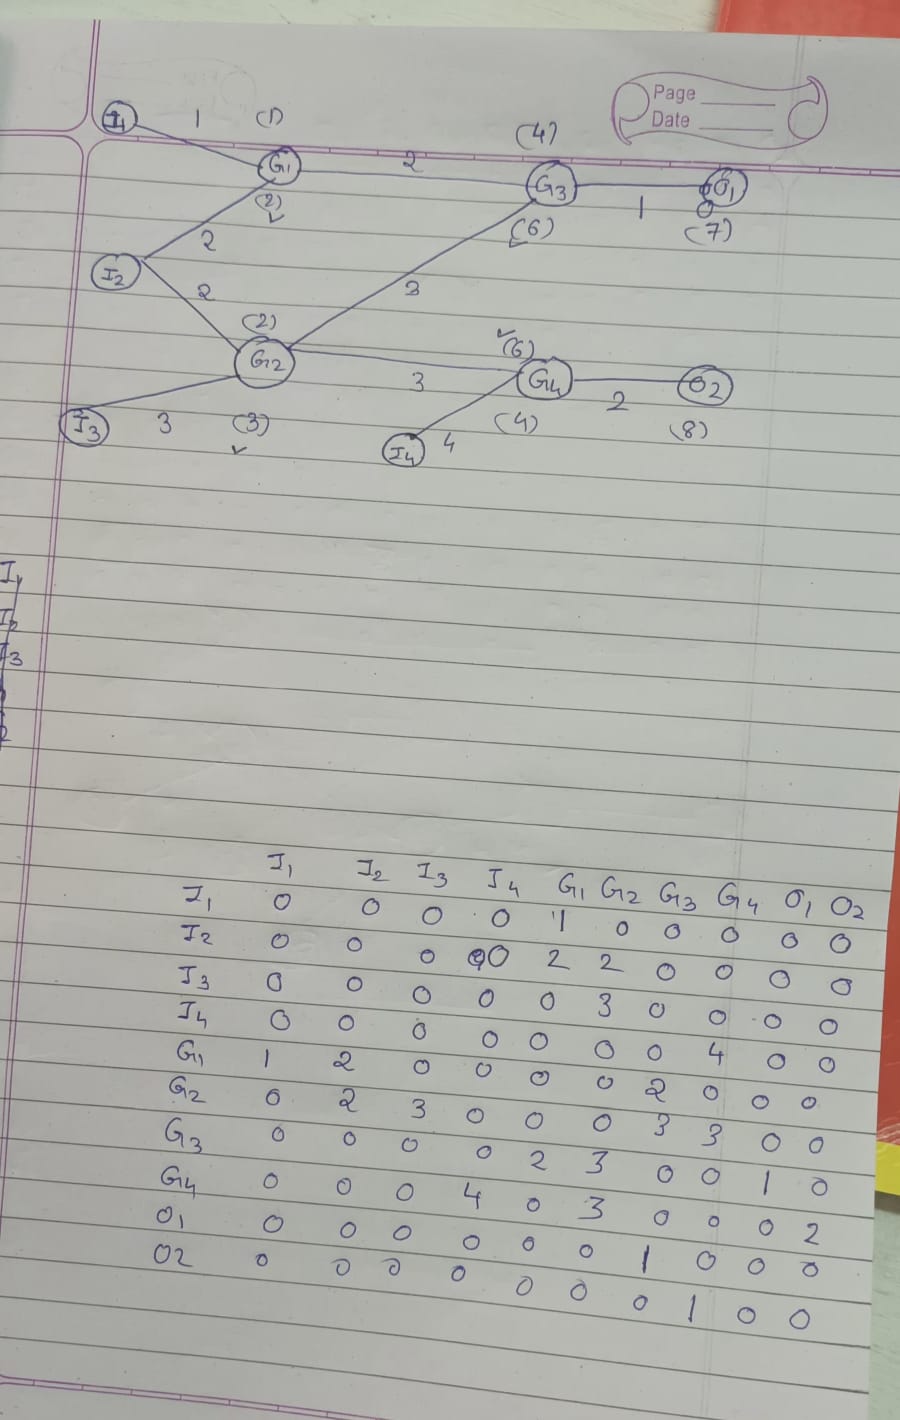 Page
Date
I1 1 (1) (4)
G1 2 G3 O1
(2) 1
2 (6) (7)
I2 2 3
(2) (6)
G2 3 G4 2 O2
I3 3 (3) (4) (8)
I4 4
I1
I2
I3
I1 I2 I3 I4 G1 G2 G3 G4 O1 O2
I1 0 0 0 0 1 0 0 0 0 0
I2 0 0 0 0 2 2 0 0 0 0
I3 0 0 0 0 0 3 0 0 0 0
I4 0 0 0 0 0 0 0 4 0 0
G1 1 2 0 0 0 0 2 0 0 0
G2 0 2 3 0 0 0 3 3 0 0
G3 0 0 0 0 2 3 0 0 1 0
G4 0 0 0 4 0 3 0 0 0 2
O1 0 0 0 0 0 0 1 0 0 0
O2 0 0 0 0 0 0 0 1 0 0